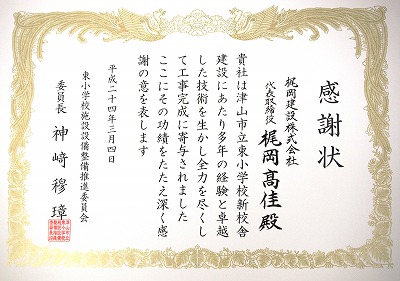 感謝状
梶岡建設株式会社
代表取締役 梶岡髙佳殿
貴社は津山市立東小学校新校舎
建設にあたり多年の経験と卓越
した技術を生かし全力を尽くし
て工事完成に寄与されました
ここにその功績をたたえ深く感
謝の意を表します
平成二十四年三月四日
東小学校施設設備整備推進委員会
委員長 神﨑穆璋